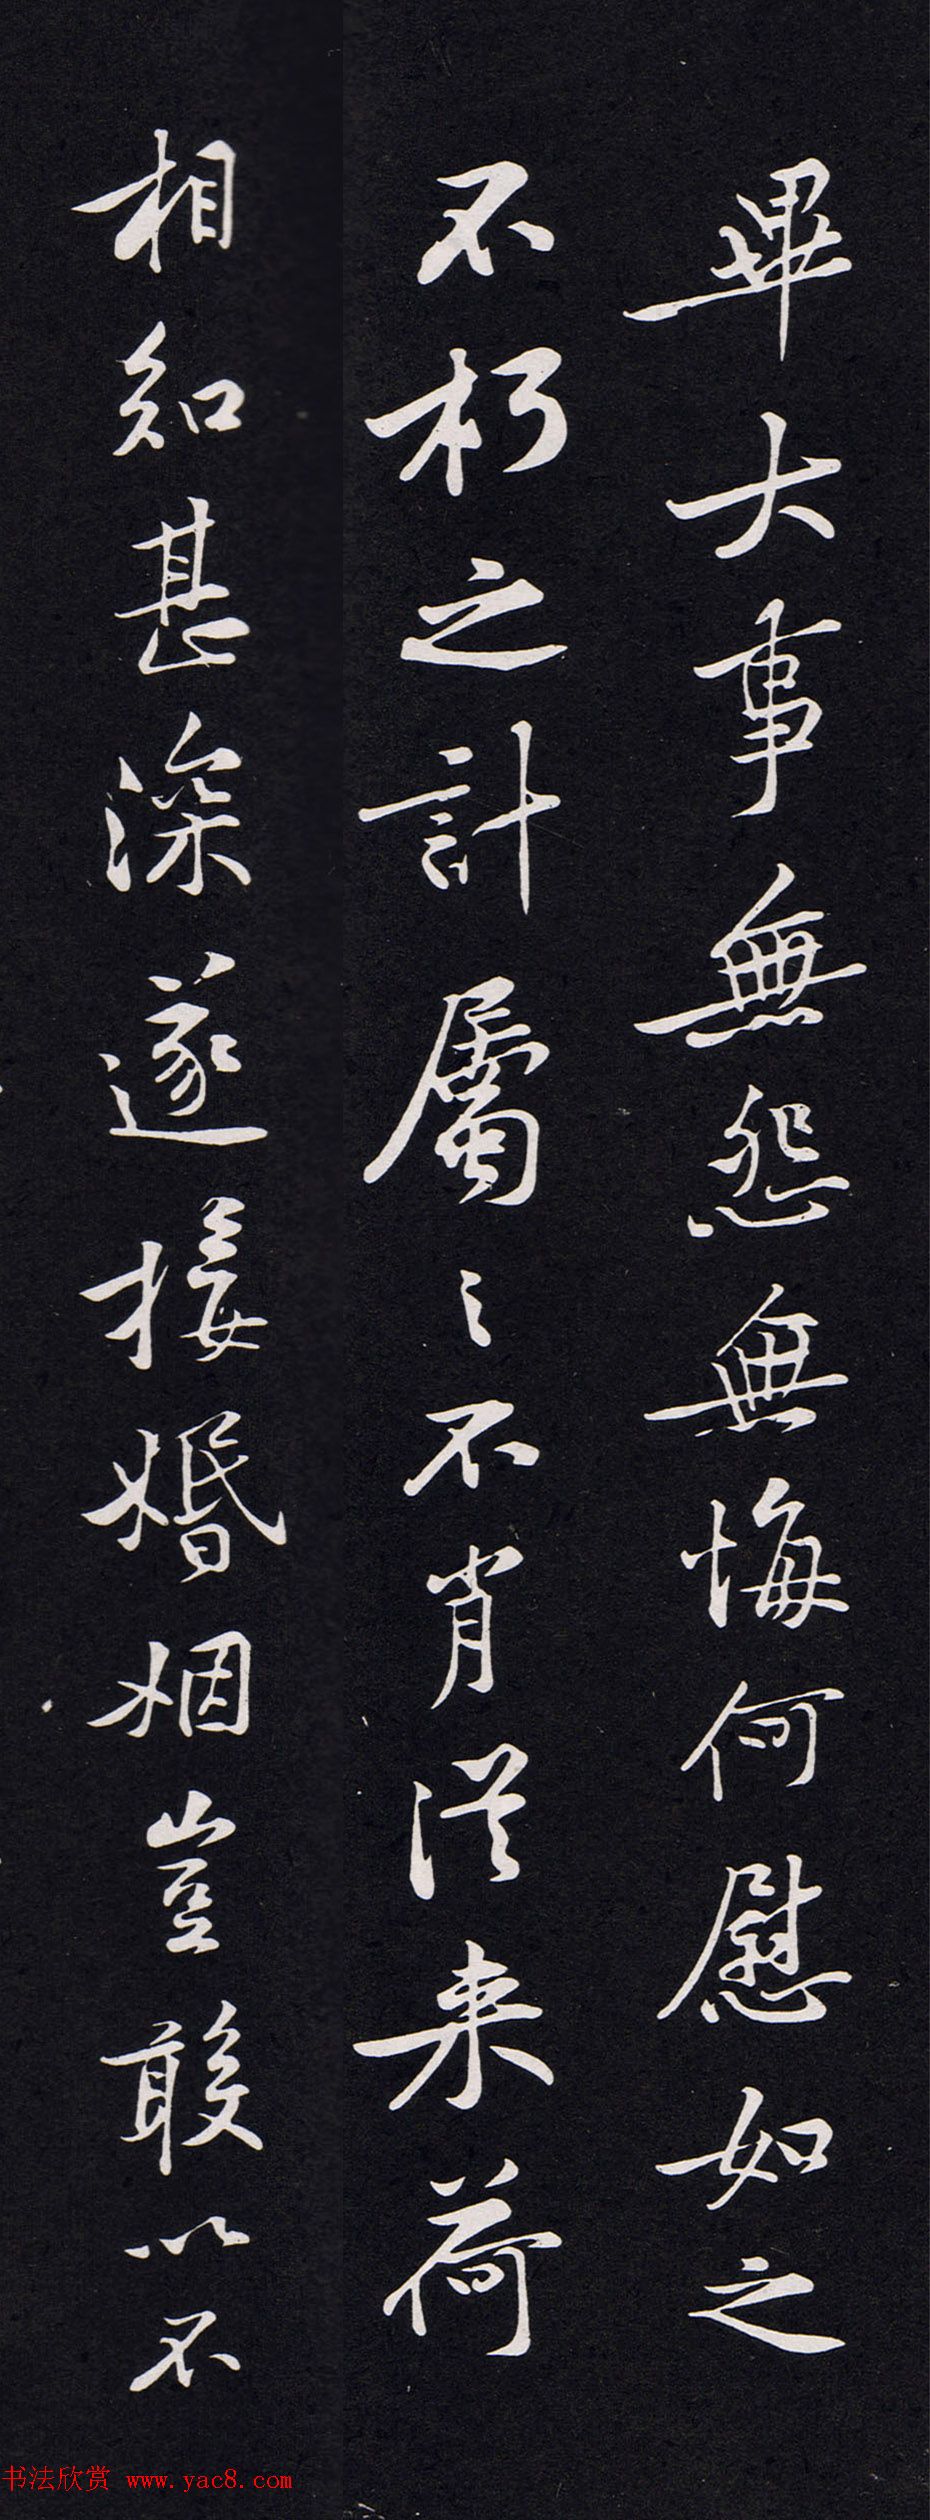 畢大事無怨無悔何慰如之
不朽之計屬〻不肖從来荷
相知甚深遂接婚姻豈敢以不
书法欣赏 www.yac8.com